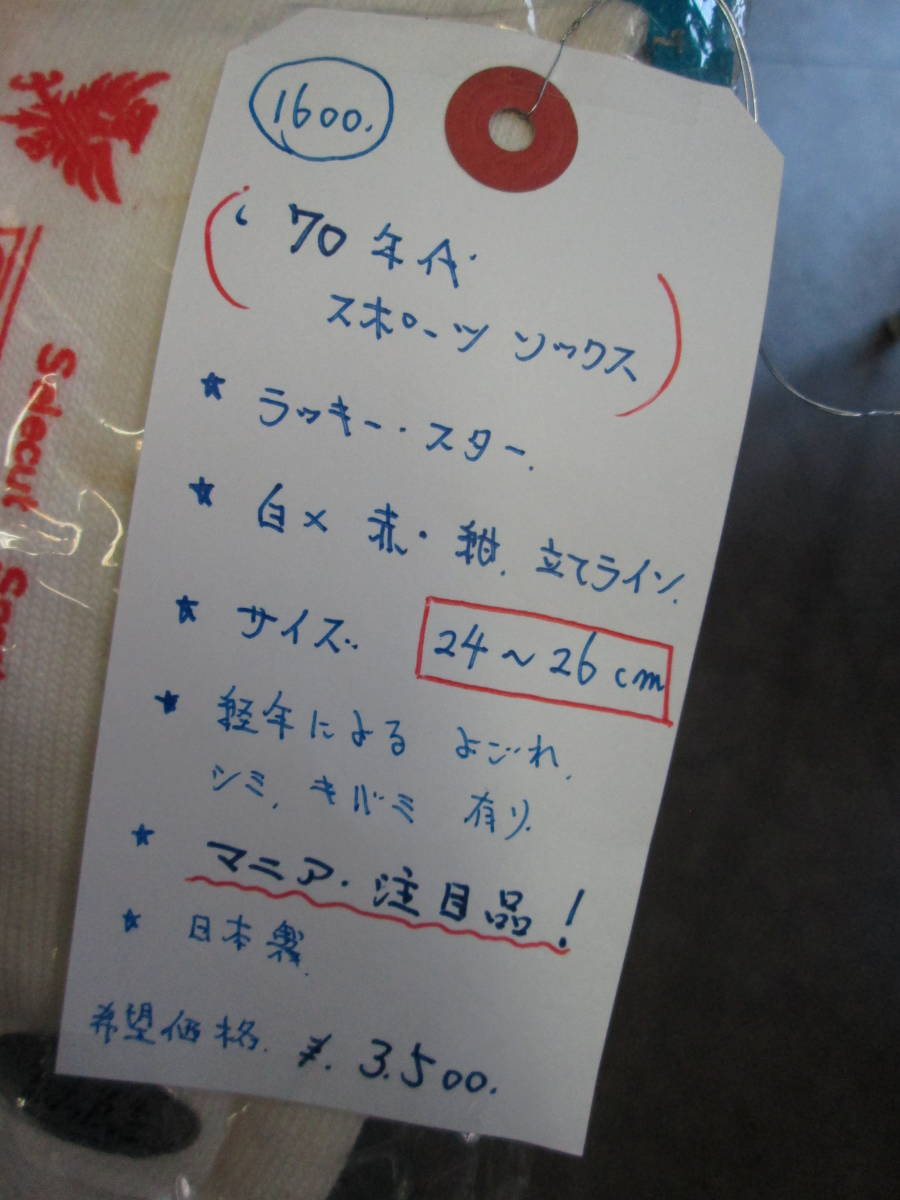 1600.
'70年A.
スポーツ ソックス
★ ラッキー・スター.
★ 白× 赤・紺. 立てライン.
★ サイズ. 24～26cm
★ 軽年による よごれ.
シミ. キバミ 有り.
★ マニア・注目品！
★ 日本製.
希望価格. ¥. 3.500.
Selecut